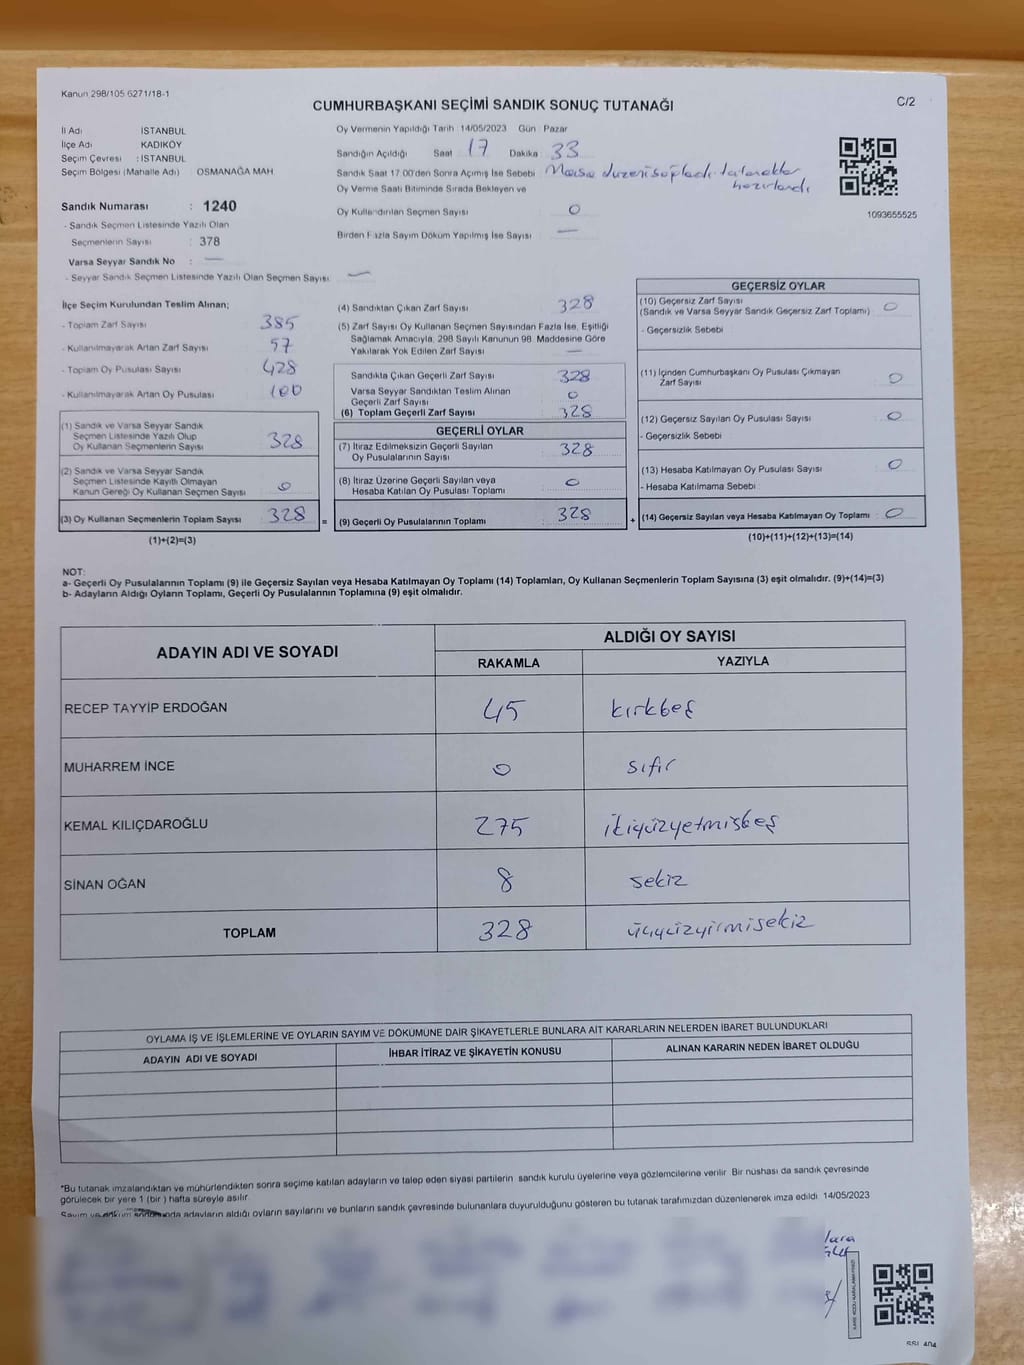 Kanun 298/105 6271/18-1
C/2
CUMHURBAŞKANI SEÇİMİ SANDIK SONUÇ TUTANAĞI
İl Adı İSTANBUL
İlçe Adı KADIKÖY
Seçim Çevresi : İSTANBUL
Seçim Bölgesi (Mahalle Adı) OSMANAĞA MAH
Sandık Numarası : 1240
- Sandık Seçmen Listesinde Yazılı Olan
Seçmenlerin Sayısı : 378
Varsa Seyyar Sandık No : —
- Seyyar Sandık Seçmen Listesinde Yazılı Olan Seçmen Sayısı: —
Oy Vermenin Yapıldığı Tarih :14/05/2023 Gün : Pazar
Sandığın Açıldığı Saat 17 Dakika : 33
Sandık Saat 17.00'den Sonra Açılmış İse Sebebi : Masa düzeni sağladı tutanaklar
hazırlandı
Oy Verme Saati Bitiminde Sırada Bekleyen ve
Oy Kullandırılan Seçmen Sayısı : 0
Birden Fazla Sayım Döküm Yapılmış İse Sayısı : —
1093655525
İlçe Seçim Kurulundan Teslim Alınan;
- Toplam Zarf Sayısı : 385
- Kullanılmayarak Artan Zarf Sayısı : 57
- Toplam Oy Pusulası Sayısı : 428
- Kullanılmayarak Artan Oy Pusulası : 100
(1) Sandık ve Varsa Seyyar Sandık
Seçmen Listesinde Yazılı Olup
Oy Kullanan Seçmenlerin Sayısı : 328
(2) Sandık ve Varsa Seyyar Sandık
Seçmen Listesinde Kayıtlı Olmayan
Kanun Gereği Oy Kullanan Seçmen Sayısı : 0
(3) Oy Kullanan Seçmenlerin Toplam Sayısı : 328
(1)+(2)=(3)
=
(4) Sandıktan Çıkan Zarf Sayısı : 328
(5) Zarf Sayısı Oy Kullanan Seçmen Sayısından Fazla İse, Eşitliği
Sağlamak Amacıyla, 298 Sayılı Kanunun 98. Maddesine Göre
Yakılarak Yok Edilen Zarf Sayısı : —
Sandıkta Çıkan Geçerli Zarf Sayısı : 328
Varsa Seyyar Sandıktan Teslim Alınan
Geçerli Zarf Sayısı : 0
(6) Toplam Geçerli Zarf Sayısı : 328
GEÇERLİ OYLAR
(7) İtiraz Edilmeksizin Geçerli Sayılan
Oy Pusulalarının Sayısı : 328
(8) İtiraz Üzerine Geçerli Sayılan veya
Hesaba Katılan Oy Pusulası Toplamı : 0
(9) Geçerli Oy Pusulalarının Toplamı : 328
+
GEÇERSİZ OYLAR
(10) Geçersiz Zarf Sayısı
(Sandık ve Varsa Seyyar Sandık Geçersiz Zarf Toplamı) : 0
- Geçersizlik Sebebi :
(11) İçinden Cumhurbaşkanı Oy Pusulası Çıkmayan
Zarf Sayısı : 0
(12) Geçersiz Sayılan Oy Pusulası Sayısı : 0
- Geçersizlik Sebebi :
(13) Hesaba Katılmayan Oy Pusulası Sayısı : 0
- Hesaba Katılmama Sebebi :
(14) Geçersiz Sayılan veya Hesaba Katılmayan Oy Toplamı : 0
(10)+(11)+(12)+(13)=(14)
NOT:
a- Geçerli Oy Pusulalarının Toplamı (9) ile Geçersiz Sayılan veya Hesaba Katılmayan Oy Toplamı (14) Toplamları, Oy Kullanan Seçmenlerin Toplam Sayısına (3) eşit olmalıdır. (9)+(14)=(3)
b- Adayların Aldığı Oyların Toplamı, Geçerli Oy Pusulalarının Toplamına (9) eşit olmalıdır.
ADAYIN ADI VE SOYADI ALDIĞI OY SAYISI
RAKAMLA YAZIYLA
RECEP TAYYİP ERDOĞAN 45 kırkbeş
MUHARREM İNCE 0 sıfır
KEMAL KILIÇDAROĞLU 275 ikiyüzyetmişbeş
SİNAN OĞAN 8 sekiz
TOPLAM 328 üçyüzyirmisekiz
OYLAMA İŞ VE İŞLEMLERİNE VE OYLARIN SAYIM VE DÖKÜMÜNE DAİR ŞİKAYETLERLE BUNLARA AİT KARARLARIN NELERDEN İBARET BULUNDUKLARI
ADAYIN ADI VE SOYADI İHBAR İTİRAZ VE ŞİKAYETİN KONUSU ALINAN KARARIN NEDEN İBARET OLDUĞU
*Bu tutanak imzalandıktan ve mühürlendikten sonra seçime katılan adayların ve talep eden siyasi partilerin sandık kurulu üyelerine veya gözlemcilerine verilir. Bir nüshası da sandık çevresinde
görülecek bir yere 1 (bir ) hafta süreyle asılır.
Sayım ve döküm adayların aldığı oyların sayılarını ve bunların sandık çevresinde bulunanlara duyurulduğunu gösteren bu tutanak tarafımızdan düzenlenerek imza edildi. 14/05/2023